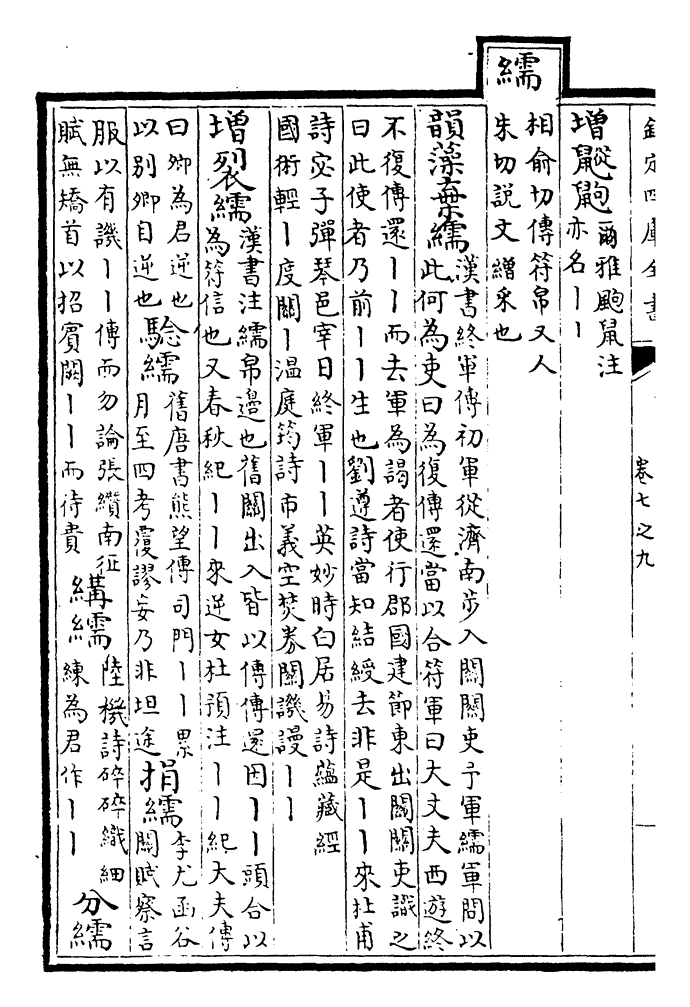 欽定四庫全書
卷七之九
增
鼩
爾雅鼩鼠注
亦名丨丨
繻
相俞切傳符帛又人
朱切說文繒采也
韻藻棄繻
漢書終軍傳初軍從濟南步入關關吏予軍繻軍問以
此何為吏曰為復傳還當以合符軍曰大丈夫西遊終
不復傳還丨丨而去軍為謁者使行郡國建節東出關關吏識之
曰此使者乃前丨丨生也劉遵詩當知結綬去非是丨丨來杜甫
詩宓子彈琴邑宰日終軍丨丨英妙時白居易詩蘊藏經
國術輕丨度關丨溫庭筠詩市義空焚券關譏謾丨丨
增裂繻
漢書注繻帛邊也舊關出入皆以傳傳還因丨丨頭合以
為符信也又春秋紀丨丨來逆女杜預注丨丨紀大夫傳
曰卿為君逆也
以別卿自逆也
驗繻
舊唐書熊望傳司門丨丨累
月至四考覆謬妄乃非坦途
捐繻
李尤函谷
關賦察言
服以有譏丨丨傳而勿論張纘南征
賦無矯首以招賓闕丨丨而待貴
構繻
陸機詩碎碎織細
練為君作丨丨
分繻